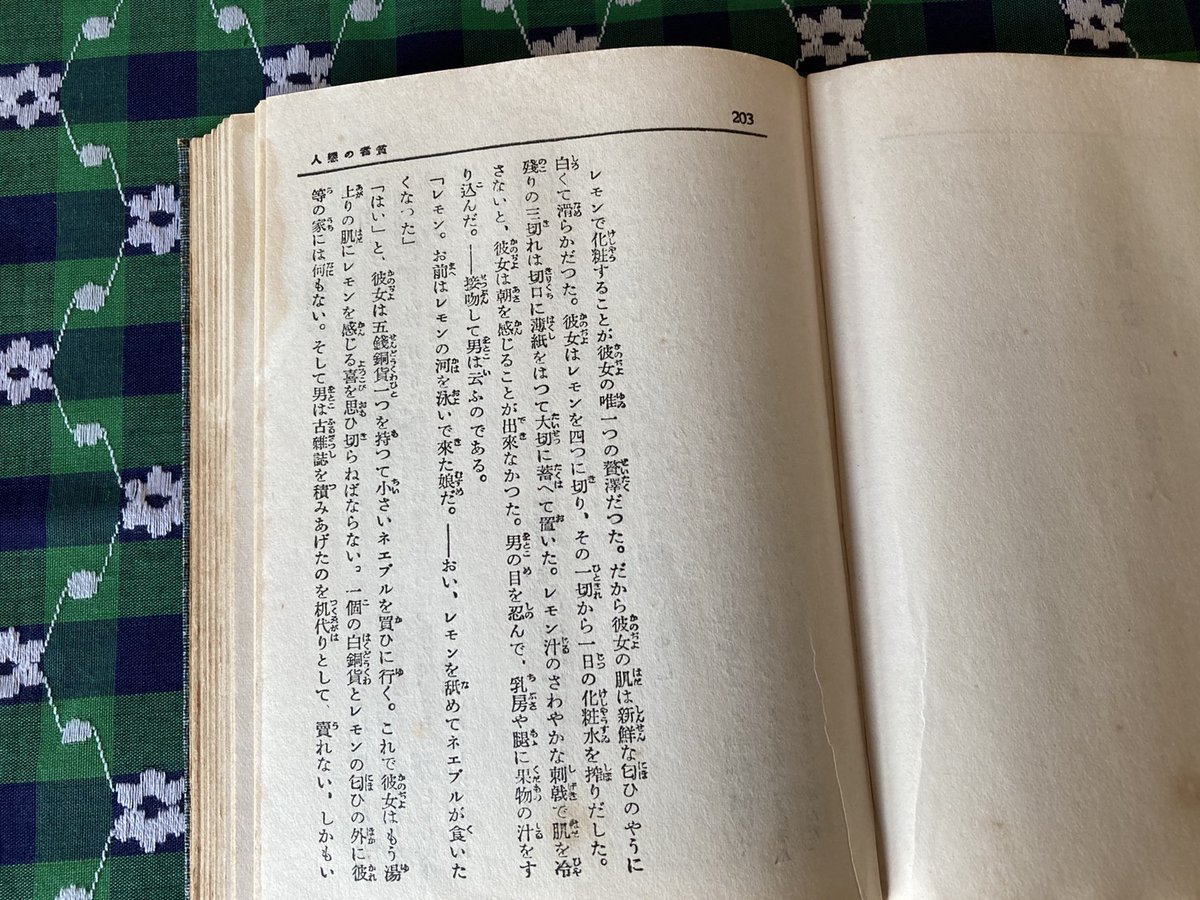 203
貧者の戀人
レモンで化粧することが彼女の唯一つの贅澤だつた。だから彼女の肌は新鮮な匂ひのやうに
白くて滑らかだつた。彼女はレモンを四つに切り、その一切から一日の化粧水を搾りだした。
殘りの三切れは切口に薄紙をはつて大切に蓄へて置いた。レモン汁のさわやかな刺戟で肌を冷
さないと、彼女は朝を感じることが出來なかつた。男の目を忍んで、乳房や腿に果物の汁をす
り込んだ。――接吻して男は云ふのである。
「レモン。お前はレモンの河を泳いで來た娘だ。――おい、レモンを舐めてネエブルが食いた
くなつた」
「はい」と、彼女は五錢銅貨一つを持つて小さいネエブルを買ひに行く。これで彼女はもう湯
上りの肌にレモンを感じる喜を思ひ切らねばならない。一個の白銅貨とレモンの匂ひの外に彼
等の家には何もない。そして男は古雜誌を積みあげたのを机代りとして、賣れない、しかもい